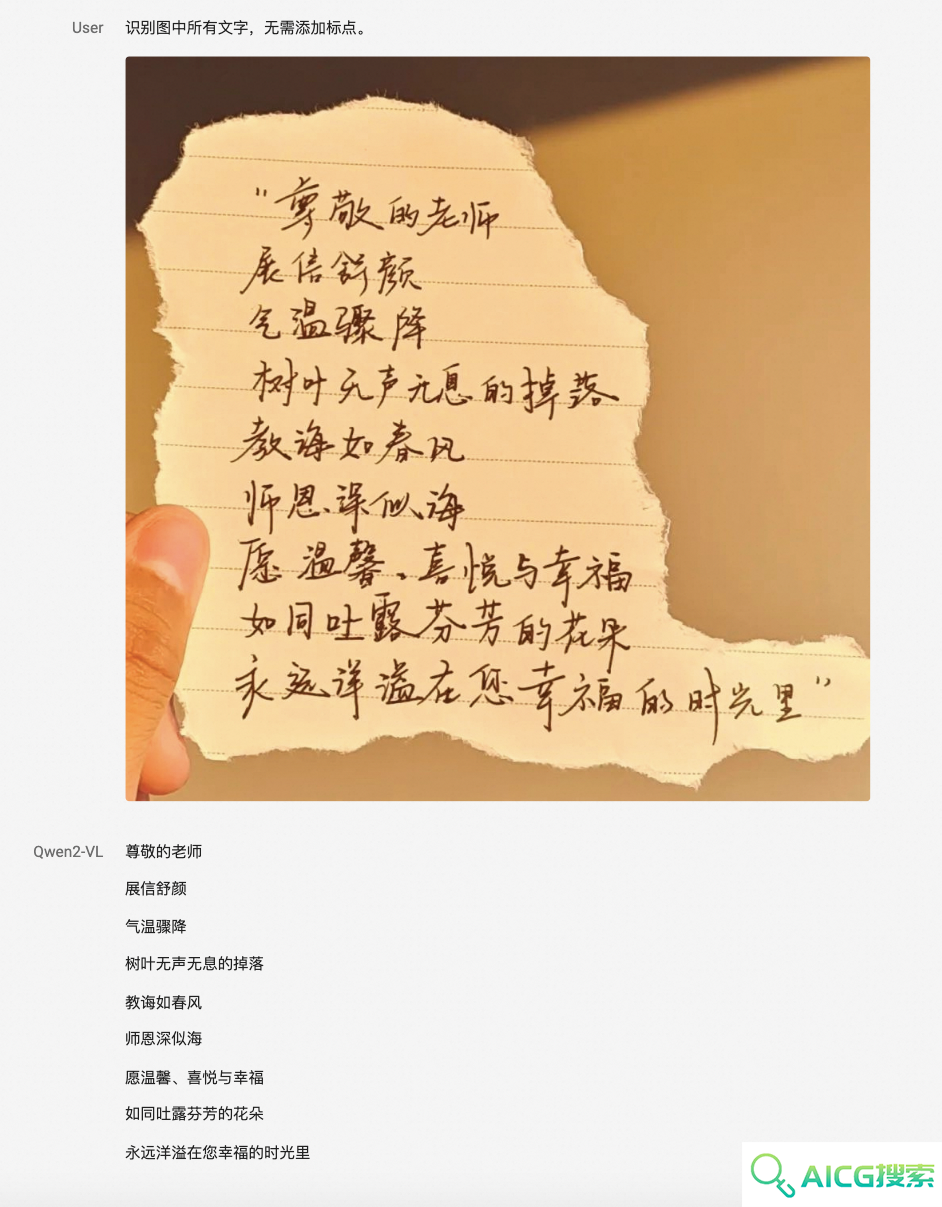 User 识别图中所有文字，无需添加标点。
"尊敬的老师
展信舒颜
气温骤降
树叶无声无息的掉落
教诲如春风
师恩深似海
愿温馨、喜悦与幸福
如同吐露芬芳的花朵
永远洋溢在您幸福的时光里"
Qwen2-VL 尊敬的老师
展信舒颜
气温骤降
树叶无声无息的掉落
教诲如春风
师恩深似海
愿温馨、喜悦与幸福
如同吐露芬芳的花朵
永远洋溢在您幸福的时光里
AICG搜索